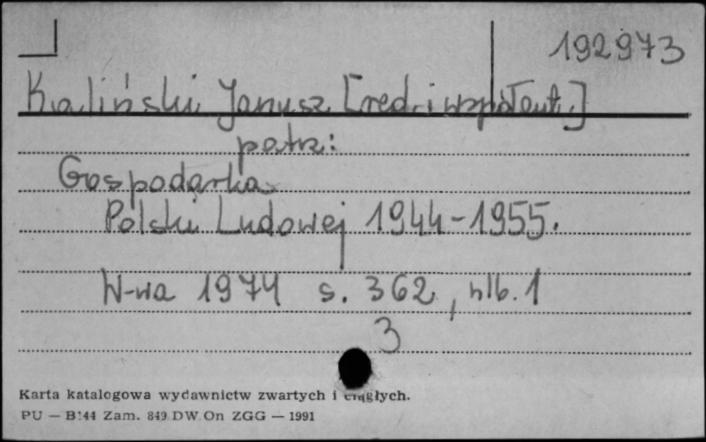 192973
Kaliński Janusz [red. i współaut.]
patrz:
Gospodarka
Polski Ludowej 1944-1955.
W-wa 1974 s. 362, nlb. 1
3
Karta katalogowa wydawnictw zwartych i ciągłych.
PU — B144 Zam. 849 DW On ZGG — 1991